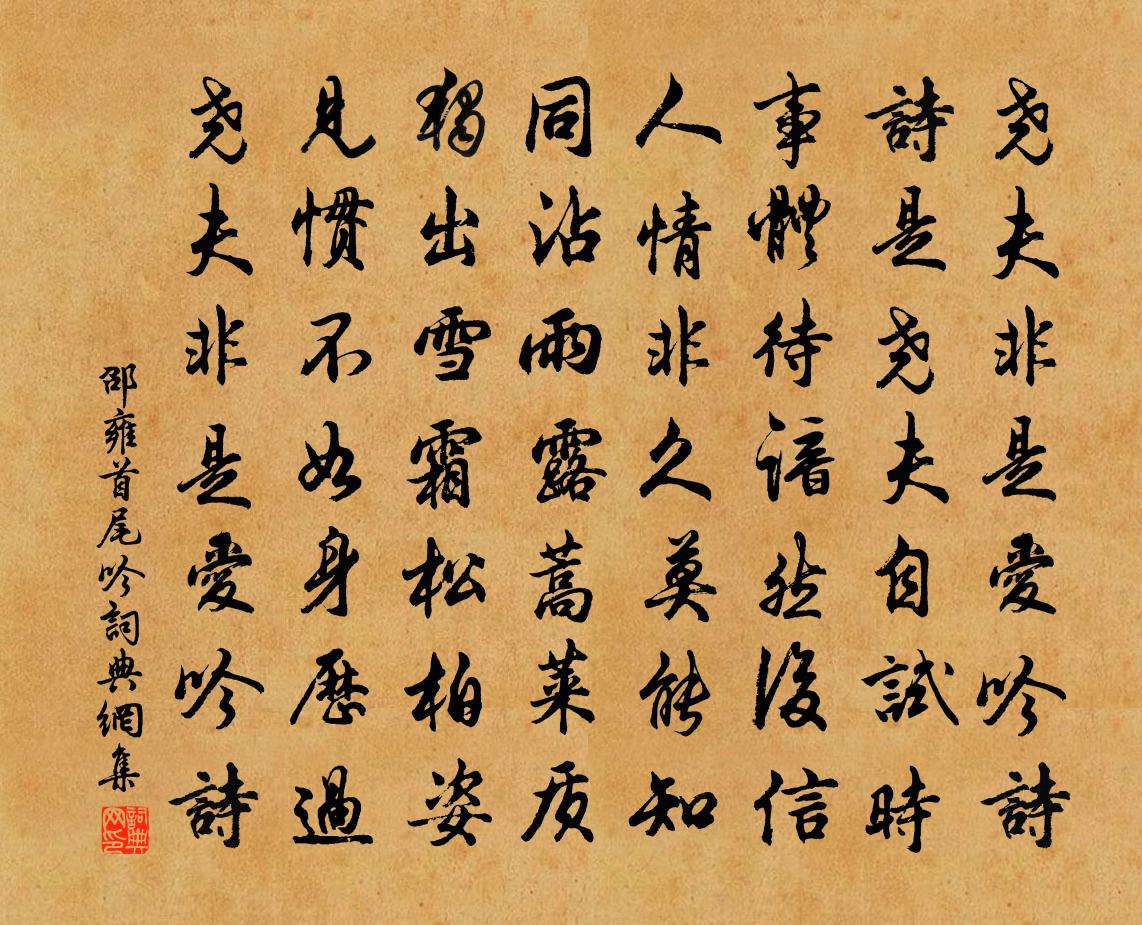 堯夫非是愛吟詩
詩是堯夫自試時
事體待諳然後信
人情非久莫能知
同沾雨露蒿萊质
獨出雪霜松柏姿
見慣不如身歷過
堯夫非是愛吟詩
邵雍首尾吟詞典網集
詞典网印